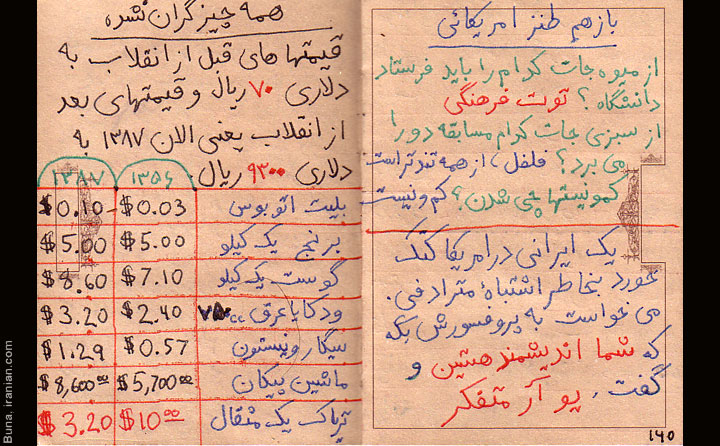 باز هم طنز امریکائی
از میوه جات کدام را باید فرستاد
دانشگاه؟ توت فرهنگی
از سبزی جات کدام مسابقه دو را
می برد؟ فلفل، از همه تندتر است
کمونیستها چی شدن؟ کم و نیست
یک ایرانی در امریکا کتک
نخورد بخاطر اشتباهٔ مترادفی.
می خواست به پروفسورش بگه
که شما اندیشمند هستین و
گفت، یو آر متفکر
۱۴۰
همه چیز گران نشده
قیمتهای قبل از انقلاب به
دلاری ۷۰ ریال و قیمتهای بعد
از انقلاب یعنی الان ۱۳۸۷ به
دلاری ۹۳۰۰ ریال.
۱۳۵۶ ۱۳۸۷
بلیت اتوبوس $0.03 $0.10
برنج یک کیلو $5.00 $5.00
گوشت یک کیلو $7.10 $8.60
ودکا یا عرق ۷۵۰cc $2.40 $3.20
سیگار وینستون $0.57 $1.29
ماشین پیکان $5,700.00 $8,600.00
تریاک یک مثقال $10.00 $3.20
Buna, iranian.com